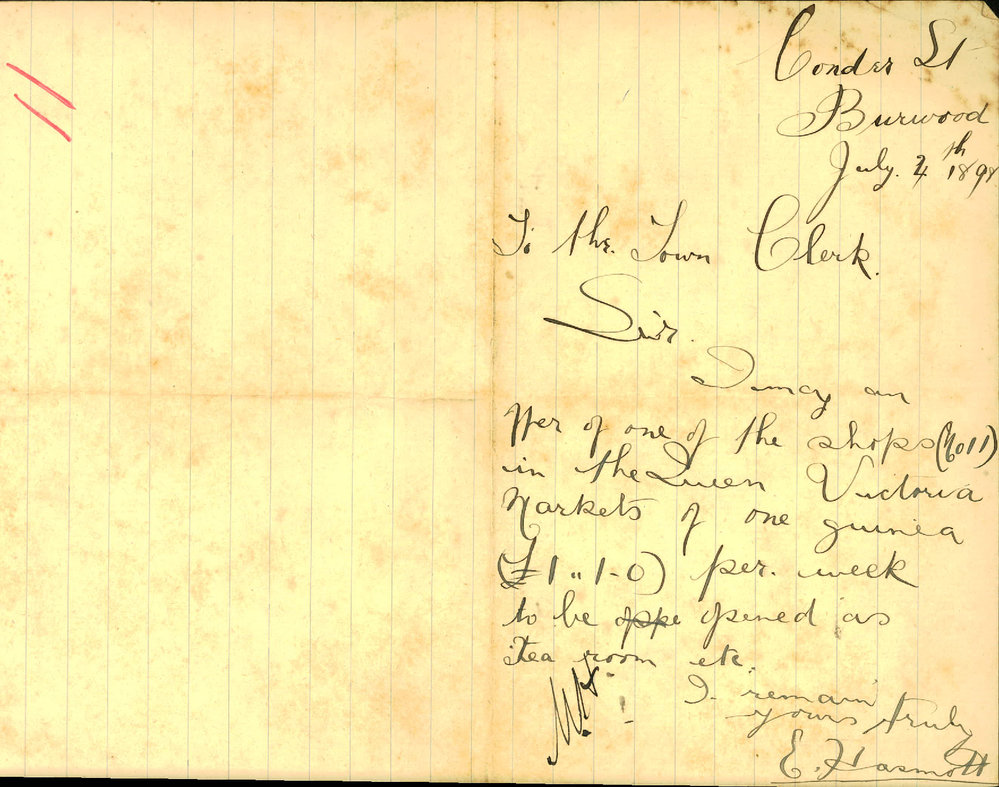 Conder St
Burwood
July. 4th 1898
To the. Town Clerk.
Sir.
I may an
offer of one of the shops (No 11)
in the Queen Victoria
Markets of one guinea
(£1 " 1-0) per. week
to be oppe opened as
Tea room etc.
I remain
yours truly
E.
11